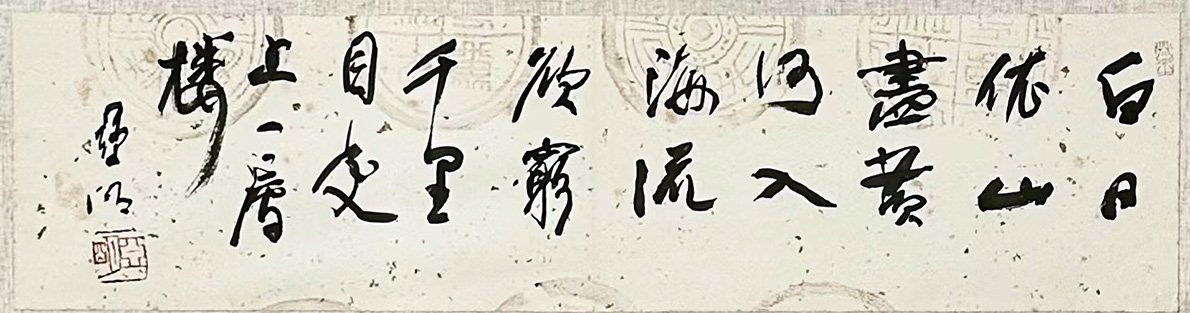 白日
依山
盡黃
河入
海流
欲窮
千里
目更
上一層
樓
亞明